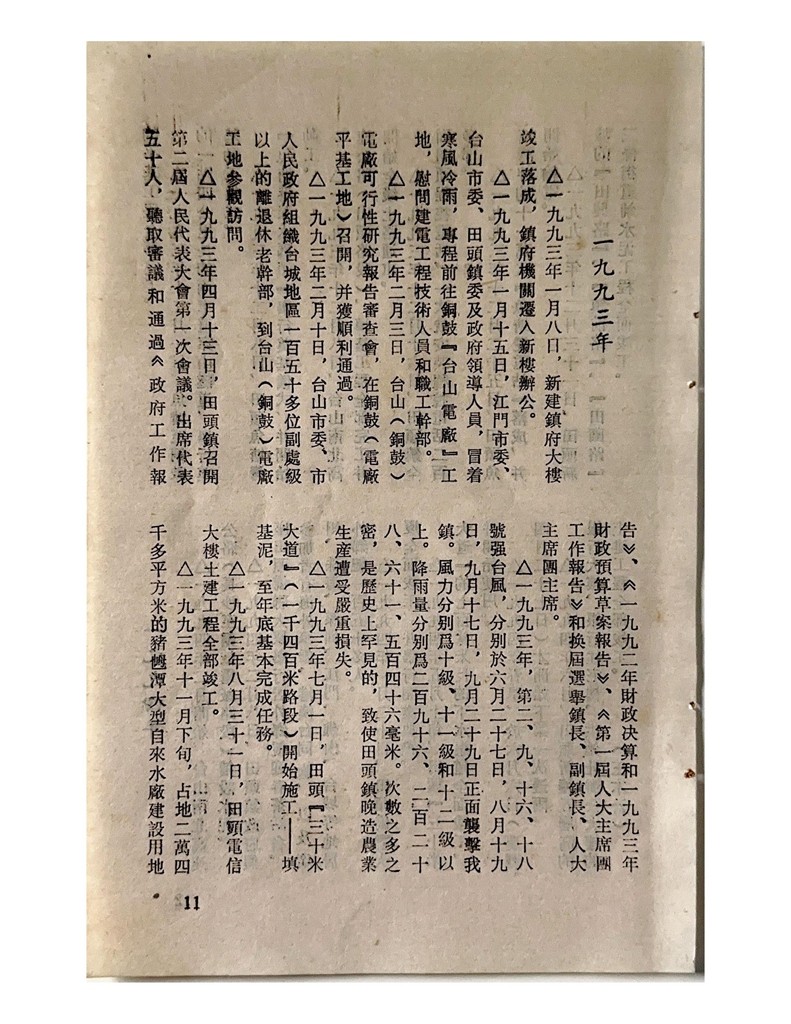 一九九三年
△一九九三年一月八日，新建鎮府大樓
竣工落成，鎮府機關遷入新樓辦公。
△一九九三年一月十五日，江門市委、
台山市委、田頭鎮委及政府領導人員，冒着
寒風冷雨，專程前往銅鼓『台山電廠』工
地，慰問建電工程技術人員和職工幹部。
△一九九三年二月三日，台山（銅鼓）
電廠可行性研究報告審查會，在銅鼓（電廠
平基工地）召開，并獲順利通過。
△一九九三年二月十日，台山市委、市
人民政府組織台城地區一百五十多位副處級
以上的離退休老幹部，到台山（銅鼓）電廠
工地參觀訪問。
△一九九三年四月十三日，田頭鎮召開
第二屆人民代表大會第一次會議。出席代表
五十人，聽取審議和通過《政府工作報
告》、《一九九二年財政決算和一九九三年
財政預算草案報告》、《第一屆人大主席團
工作報告》和換屆選舉鎮長、副鎮長、人大
主席團主席。
△一九九三年，第二、九、十六、十八
號强台風，分別於六月二十七日，八月十九
日，九月十七日，九月二十九日正面襲擊我
鎮。風力分別爲十級、十一級和十二級以
上。降雨量分別爲二百九十六、二百二十
八、六十一、五百四十六毫米。次數之多之
密，是歷史上罕見的，致使田頭鎮晚造農業
生産遭受嚴重損失。
△一九九三年七月一日，田頭『三十米
大道』（一千四百米路段）開始施工——填
基泥，至年底基本完成任務。
△一九九三年八月三十一日，田頭電信
大樓土建工程全部竣工。
△一九九三年十一月下旬，占地二萬四
千多平方米的豬乸潭大型自來水廠建設用地
11